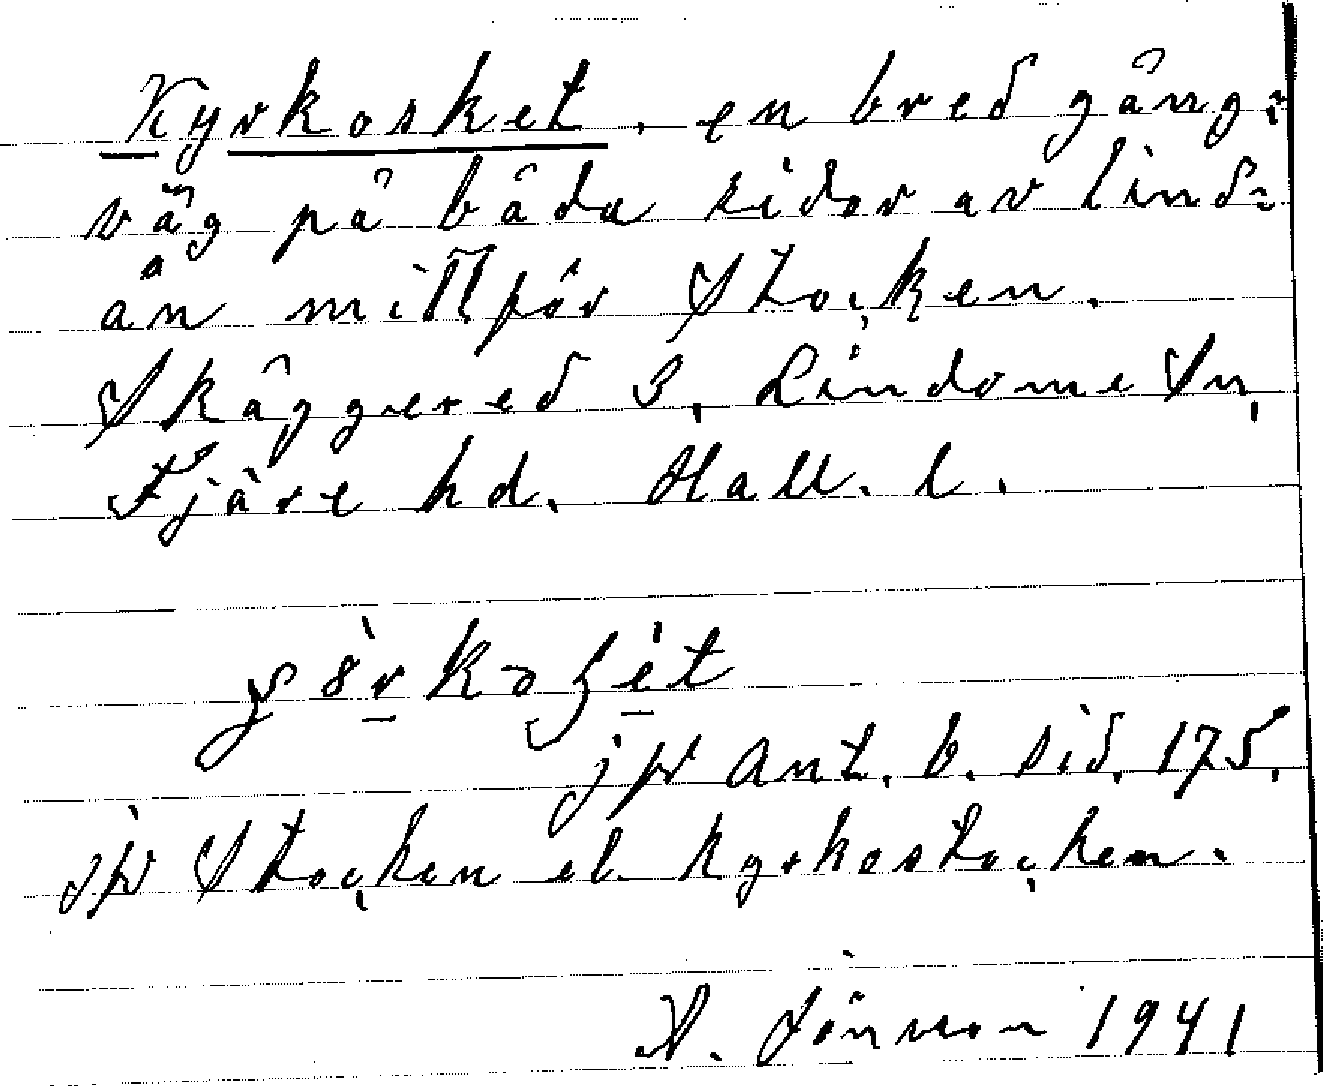 Kyrkosket. en bred gång-
väg på båda sidor av lind-
ån mittför Stocken.
Skäggered 3, Lindome Sn,
Fjäre hd. Hall. l.
jfr Ant. b. sid. 175.
jfr Stocken el. Kyrkostocken.
A. Jönsson 1941